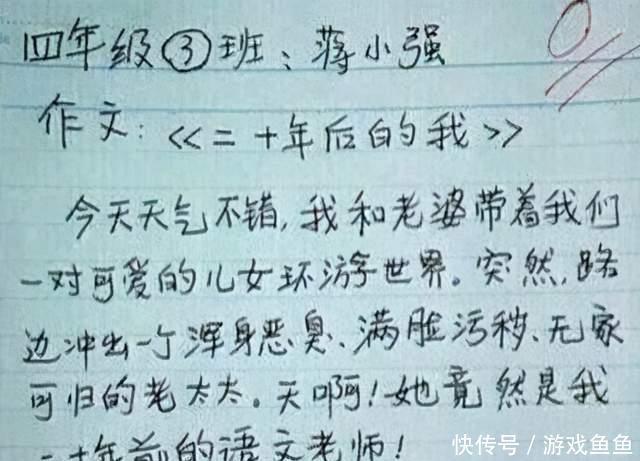 四年级③班：蒋小强
0
作文：<<二十年后的我>>
今天天气不错，我和老婆带着我们
一对可爱的儿女环游世界。突然，路
边冲出一个浑身恶臭、满脸污秽、无家
可归的老太太。天啊！她竟然是我
二十年前的语文老师！
快传号／游戏鱼鱼